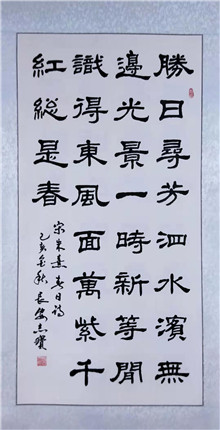 勝日尋芳泗水濱無
邊光景一時新等閒
識得東風面萬紫千
紅総是春
宋朱熹春日詩
亥金秋